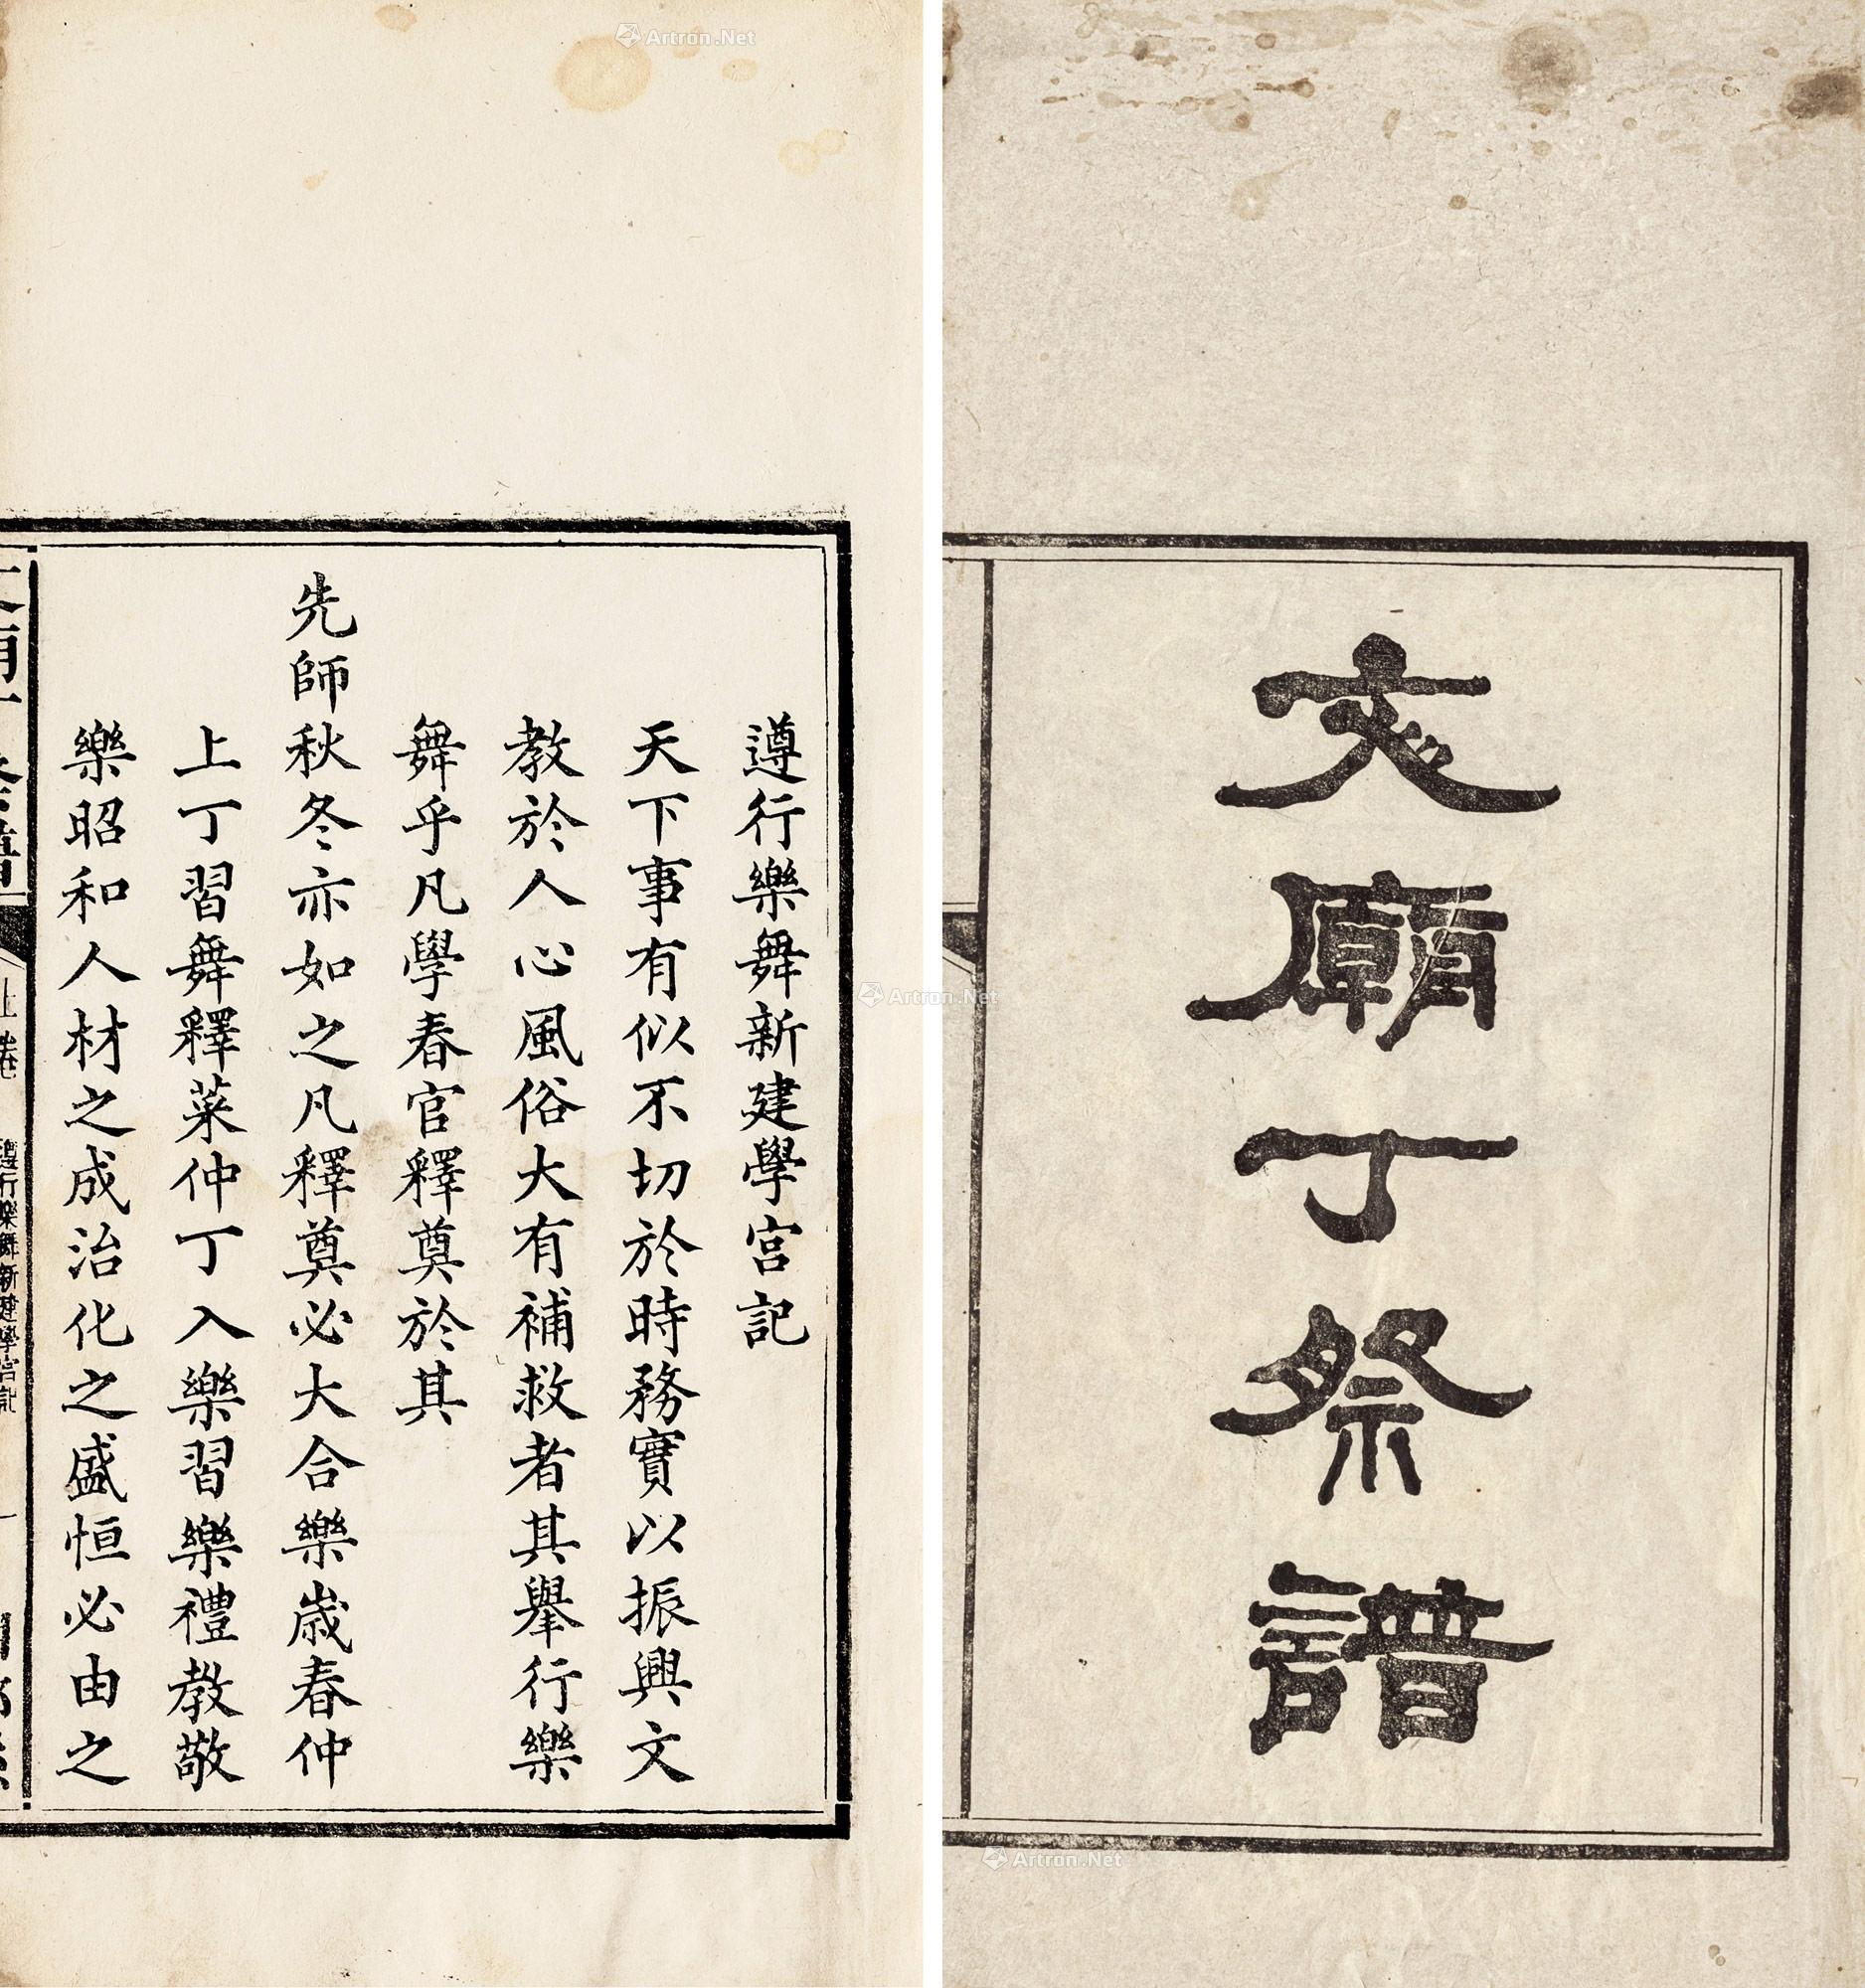 文廟丁祭譜
遵行樂舞新建學宮記
天下事有似不切於時務實以振興文
教於人心風俗大有補救者其舉行樂
舞乎凡學春官釋奠於其
先師秋冬亦如之凡釋奠必大合樂歲春仲
上丁習舞釋菜仲丁入樂習樂禮教敬
樂昭和人材之成治化之盛恒必由之
上卷
遵行樂舞新建學宮記
一
Artron.Net
Artron.Net
Artron.Net